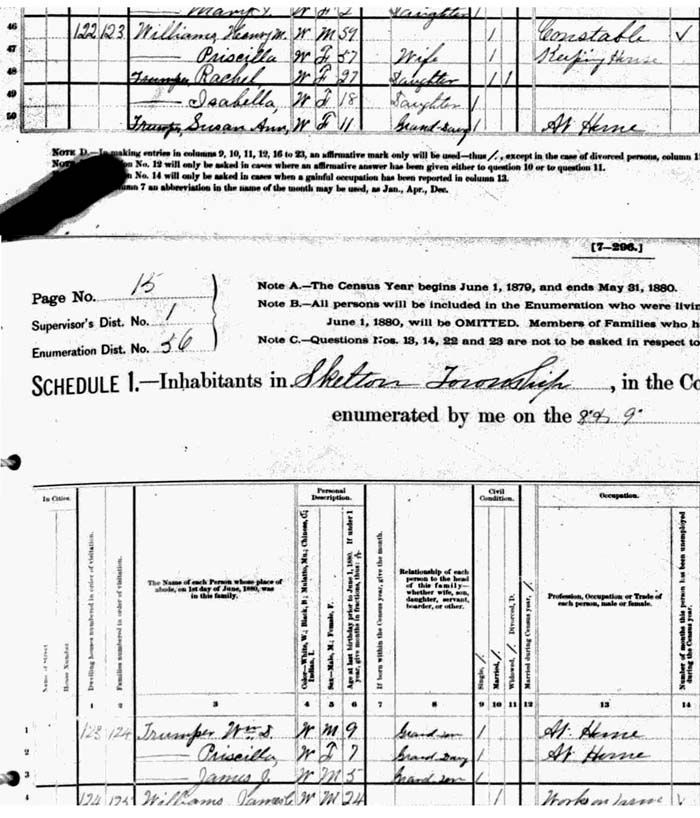 Mary J. W F 2 Daughter 1
46 122 123 Williams Henry M. W M 59 1 Constable ✓
47 — Priscilla W F 57 Wife 1 Keeping House
48 Trumper, Rachel W F 27 Daughter 1 1
49 — Isabella, W F 18 Daughter 1
50 Trumper, Susan Ann, W F 11 Grand-Daug 1 At Home
NOTE D.—In making entries in columns 9, 10, 11, 12, 16 to 23, an affirmative mark only will be used—thus /, except in the case of divorced persons, column 1
on No. 12 will only be asked in cases where an affirmative answer has been given either to question 10 or to question 11.
n No. 14 will only be asked in cases when a gainful occupation has been reported in column 13.
umn 7 an abbreviation in the name of the month may be used, as Jan., Apr., Dec.
[7-296.]
Page No. 15
Supervisor's Dist. No. 1
Enumeration Dist. No. 56
Note A.—The Census Year begins June 1, 1879, and ends May 31, 1880.
Note B.—All persons will be included in the Enumeration who were livin
June 1, 1880, will be OMITTED. Members of Families who h
Note C.—Questions Nos. 13, 14, 22 and 23 are not to be asked in respect to
SCHEDULE 1.—Inhabitants in Skelton Township, in the Co
enumerated by me on the 8 & 9"
In Cities.
Name of Street
House Number
Dwelling houses numbered in order of visitation.
Families numbered in order of visitation.
The Name of each Person whose place of abode, on 1st day of June, 1880, was in this family.
Personal Description.
Color—White, W.; Black, B.; Mulatto, Mu.; Chinese, C.; Indian, I.
Sex—Male, M.; Female, F.
Age at last birthday prior to June 1, 1880. If under 1 year, give months in fractions, thus:
If born within the Census year, give the month.
Relationship of each person to the head of this family—whether wife, son, daughter, servant, boarder, or other.
Civil Condition.
Single, /.
Married, /.
Widowed, /. Divorced, D.
Married during Census year, /.
Occupation.
Profession, Occupation or Trade of each person, male or female.
Number of months this person has been unemployed during the Census year.
1 2 3 4 5 6 7 8 9 10 11 12 13 14
1 123 124 Trumper Wm D. W M 9 Grand-son 1 At Home
2 — Priscilla W F 7 Grand Daug 1 At Home
3 — James J. W M 5 Grand-son 1
4 124 125 Williams James W M 24 1 Works on farm